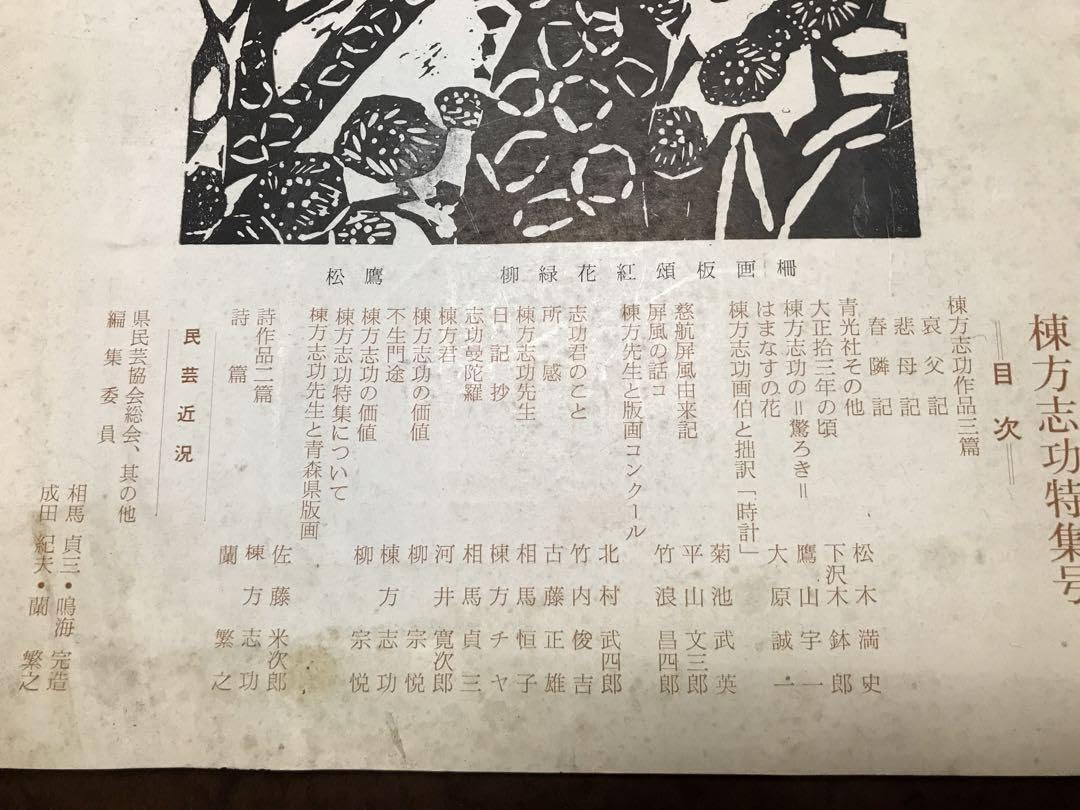 柳緑花紅頌板画柵
松鷹
棟方志功特集号
＝目次＝
棟方志功作品三篇
哀父記
悲母記
春隣記
青光社その他 松木満史
大正拾三年の頃 下沢木鉢郎
棟方志功の＝驚ろき＝ 鷹山宇一
はまなすの花 大原誠一
棟方志功画伯と拙訳「時計」 菊池武英
慈航屏風由来記 平山文三郎
屏風の話コ 竹浪昌四郎
棟方先生と版画コンクール 北村武四郎
志功君のこと 竹内俊吉
所感 古藤正雄
棟方志功先生 相馬恒子
日記抄 棟方チヤ
志功曼陀羅 相馬貞三
棟方君 河井寛次郎
棟方志功の価値 柳宗悦
不生門途 棟方志功
棟方志功の価値 柳宗悦
棟方志功特集について
棟方志功先生と青森県版画 佐藤米次郎
詩作品二篇 棟方志功
詩篇 蘭繁之
民芸近況
県民芸協会総会、其の他
編集委員
相馬貞三・鳴海完造
成田紀夫・蘭繁之